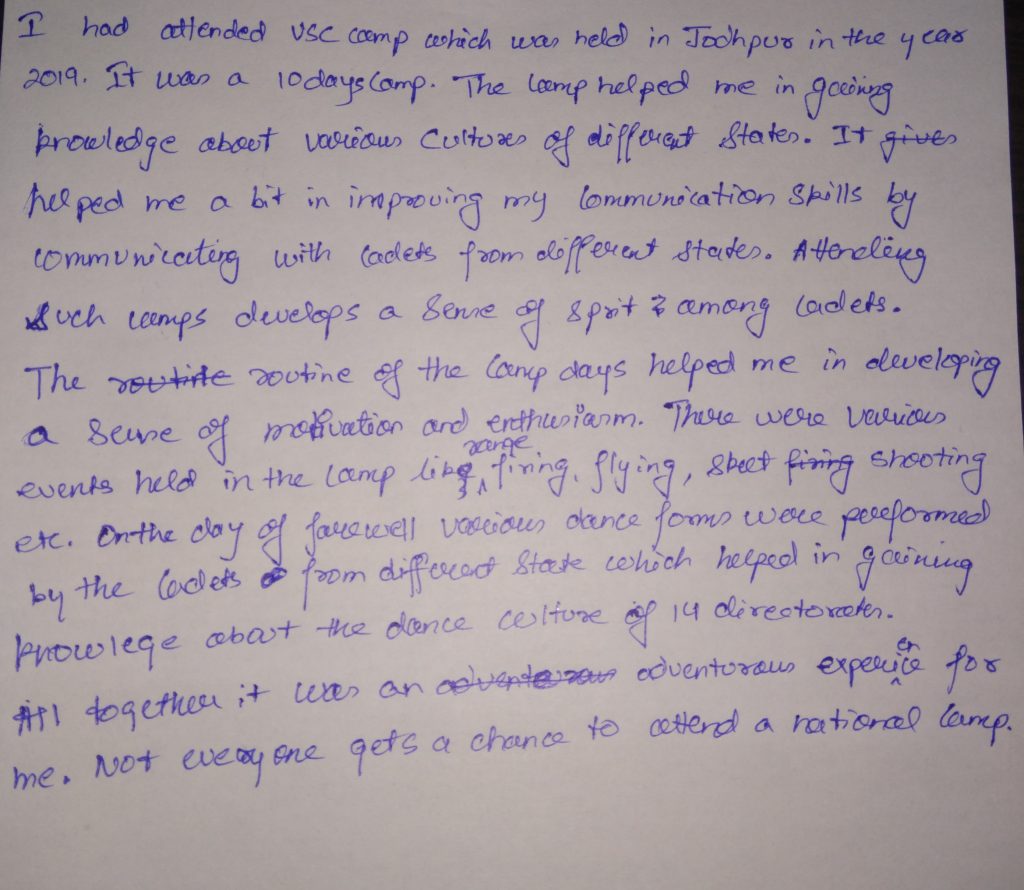 I had attended VSC camp which was held in Jodhpur in the year
2019. It was a 10 days Camp. The Camp helped me in gaining
knowledge about various Cultures of different States. It gives
helped me a bit in improving my Communication Skills by
communicating with Cadets from different states. Attending
Such camps develops a Sense of sprit & among Cadets.
The routine routine of the Camp days helped me in developing
a Sense of motivation and enthusiasm. There were various
events held in the Camp like range firing, flying, skeet firing shooting
etc. On the day of farewell various dance forms were performed
by the Cadets from different State which helped in gaining
knowlege about the dance culture of 14 directorates.
All together it was an adventurous adventurous experience for
me. Not everyone gets a chance to attend a national Camp.